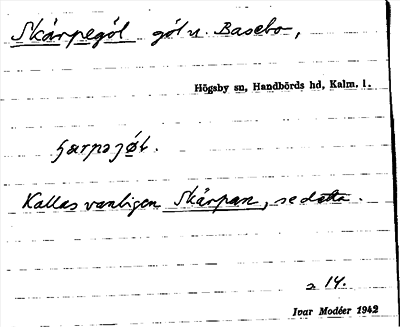 Skärpegöl göl v. Basebo,
Högsby sn, Handbörds hd, Kalm. l.
Kallas vanligen Skärpan, se detta.
a 14.
Ivar Modéer 1942